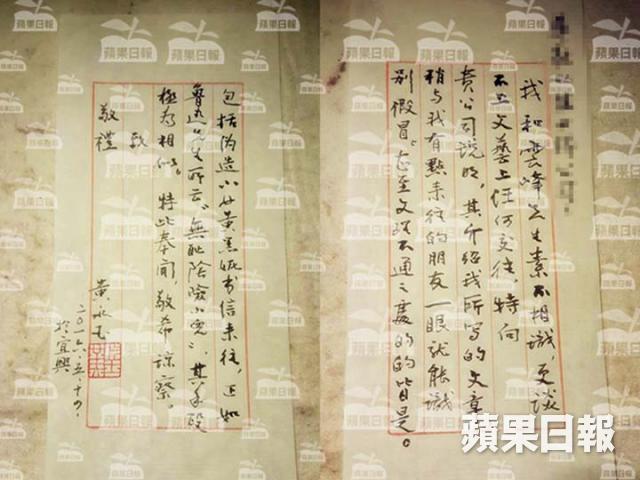 我和雲峰先生素不相識，更談
不上文藝上任何交往，特向
貴公司说明，其介紹我所寫的文章
稍与我有點来往的朋友一眼就能識
别假冒。甚至文理不通之處的的皆是。
包括伪造小女黄黑妮书信来往，正如
鲁迅先生所云，無耻陰險小
極為相似。特此奉闻，敬希諒察。
致
敬禮
黄永玉
二〇一六.五.十
於宜興
蘋果日報